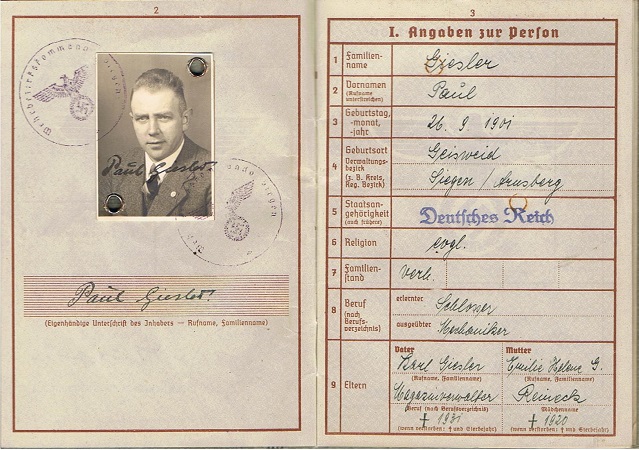 2
Wehrbezirkskommando Siegen
Paul Giesler
Paul Giesler
(Eigenhändige Unterschrift des Inhabers — Rufname, Familienname)
3
I. Angaben zur Person
1 Familien-
name
Giesler
2 Vornamen
(Rufname
unterstreichen)
Paul
3 Geburtstag,
-monat,
-jahr
26. 9. 1901
4 Geburtsort
Verwaltungs-
bezirk
(z. B. Kreis,
Reg. Bezirk)
Geisweid
Siegen / Arnsberg
5 Staatsan-
gehörigkeit
(auch frühere)
Deutsches Reich
6 Religion
evgl.
7 Familien-
stand
verh.
8 Beruf
(nach
Berufs-
verzeichnis)
erlernter
Schlosser
ausgeübter
Mechaniker
9 Eltern
Vater
Karl Giesler
(Rufname, Familienname)
Magazinverwalter
Beruf (nach Berufsverzeichnis)
† 1931
(wenn verstorben: † und Sterbejahr)
Mutter
Emilie Helene G.
(Rufname, Familienname)
Reineck
Mädchenname
† 1920
(wenn verstorben: † und Sterbejahr)